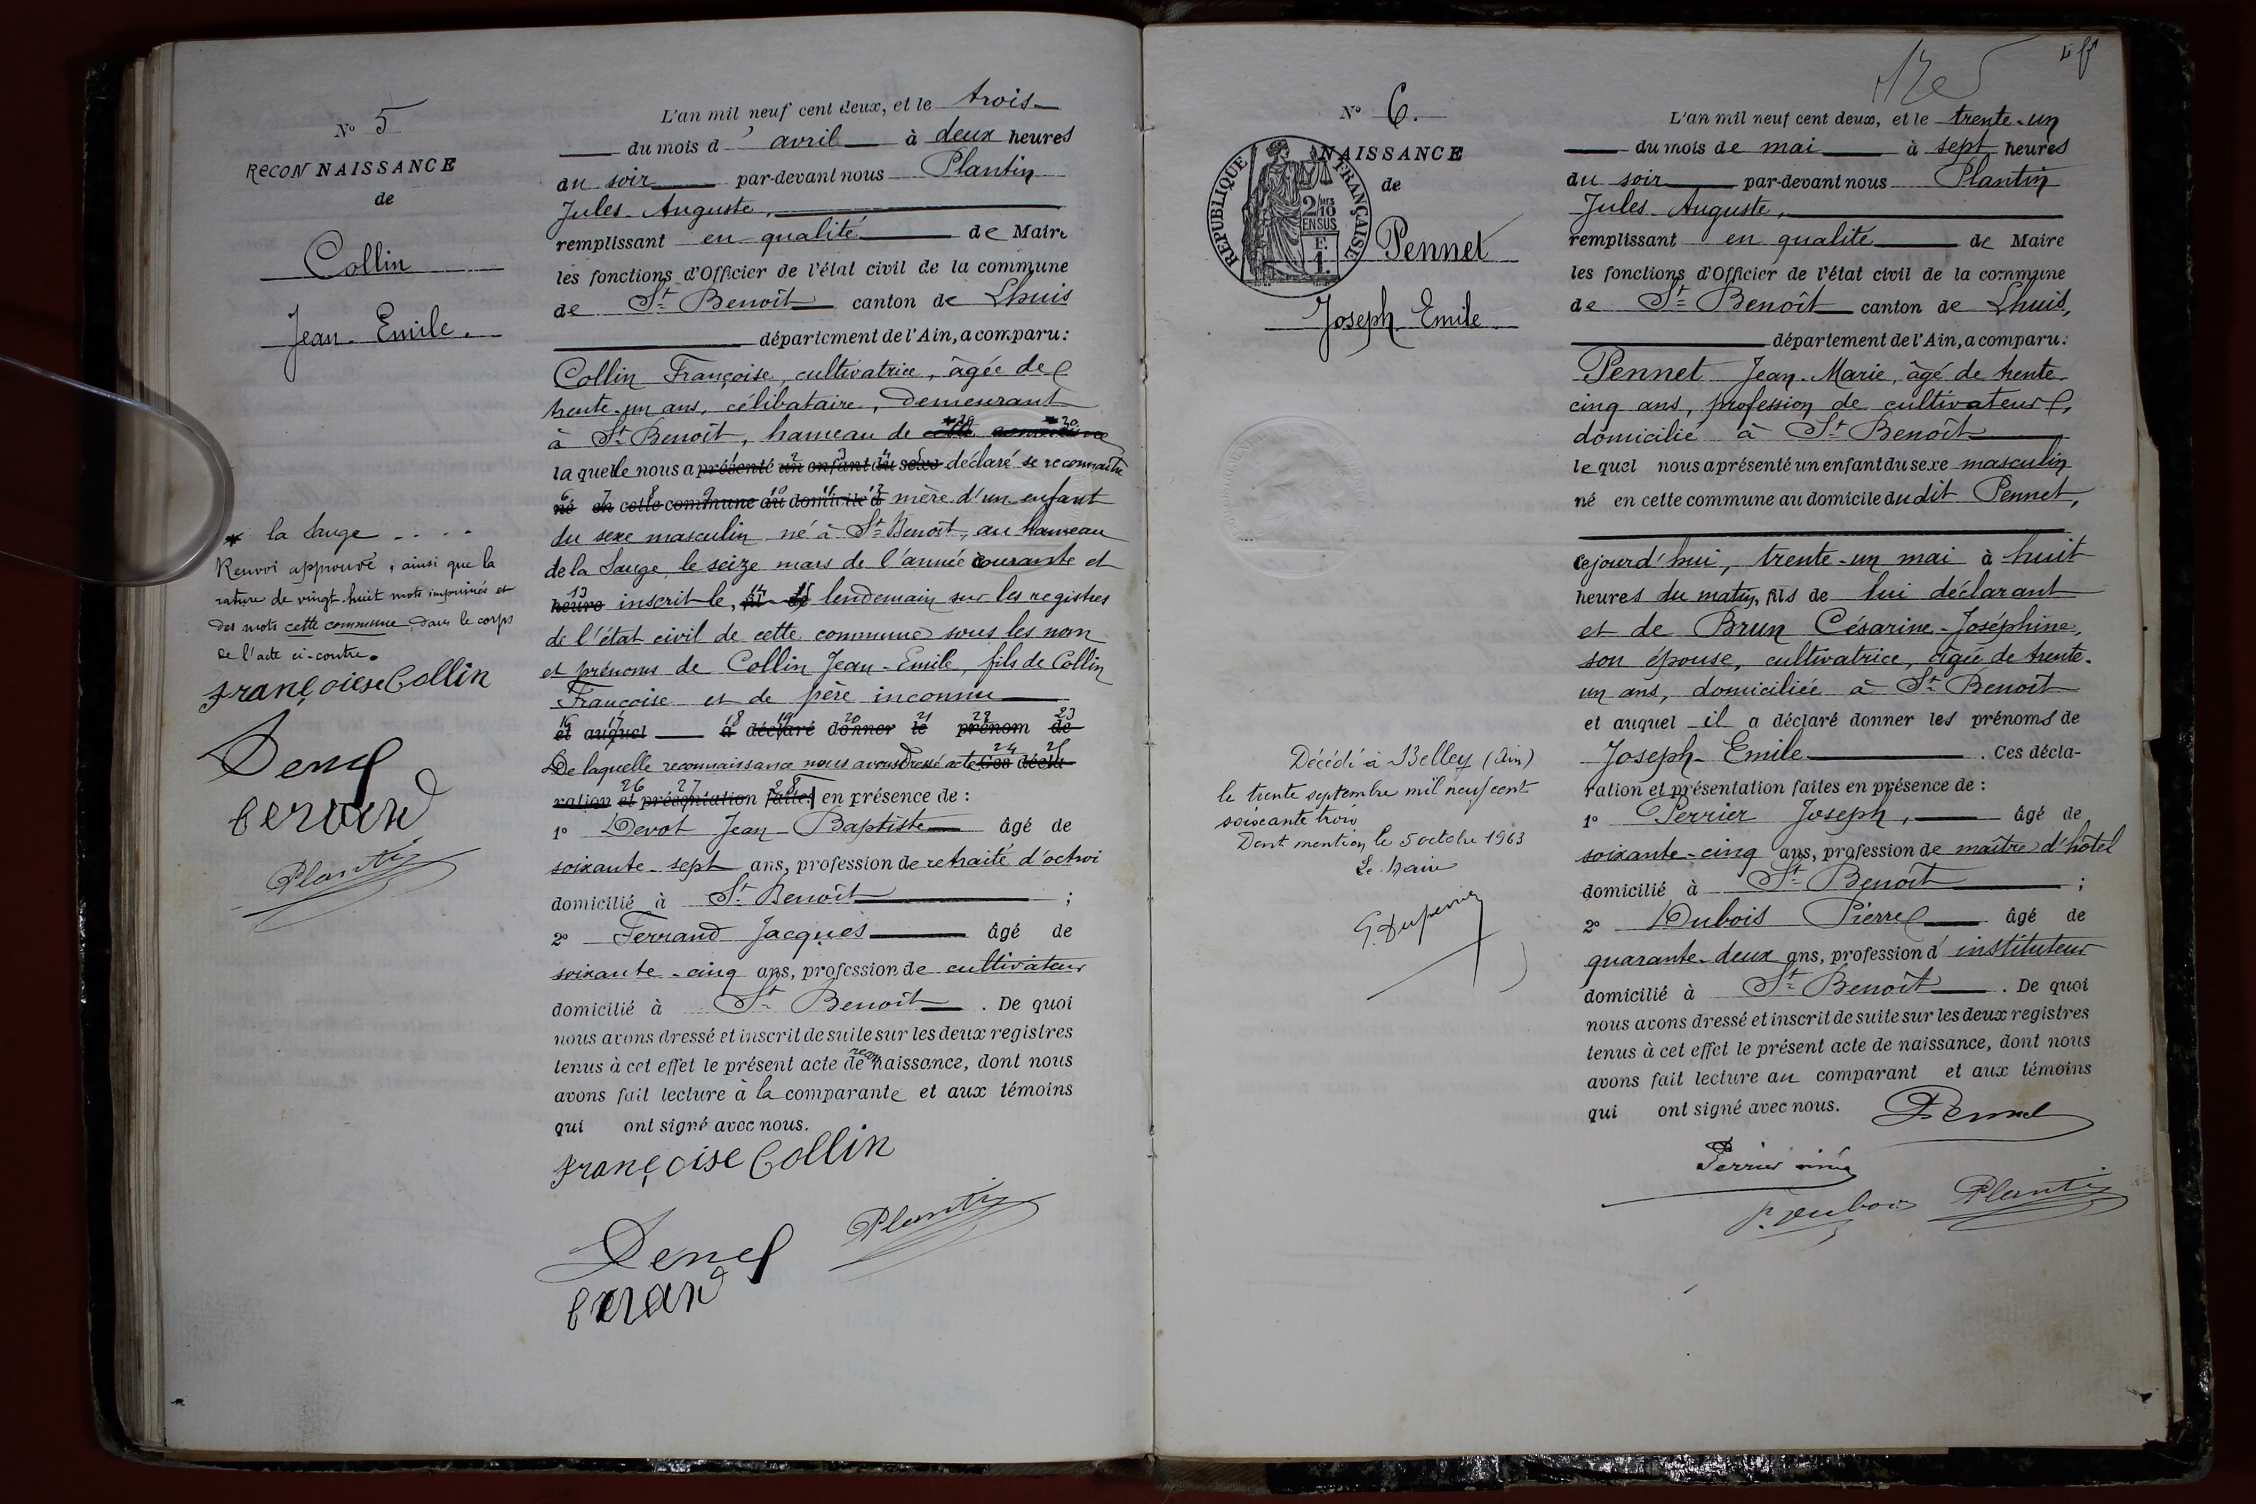 N° 5
RECONNAISSANCE
de
Collin
Jean-Emile.
* la Sauge - - - -
Renvoi approuvé, ainsi que la
rature de vingt-huit mots imprimés et
des mots cette commune dans le corps
de l'acte ci-contre.
Françoise Collin
Plantin
L'an mil neuf cent deux, et le trois
du mois d'avril à deux heures
du soir par-devant nous Plantin
Jules-Auguste,
remplissant en qualité de Maire
les fonctions d'Officier de l'état civil de la commune
de St Benoît canton de Lhuis
département de l'Ain, a comparu:
Collin Françoise, cultivatrice, âgée de
trente-un ans, célibataire, demeurant
à St Benoît, hameau de * cette commune
laquelle nous a présenté un enfant du sexe déclaré se reconnaître
né en cette commune au domicile d mère d'un enfant
du sexe masculin né à St Benoît, au hameau
de la Sauge, le seize mars de l'année courante et
heure inscrit le, fil de lendemain sur les registres
de l'état civil de cette commune sous les nom
et prénoms de Collin Jean-Emile, fils de Collin
Françoise et de père inconnu
et auquel a déclaré donner le prénom de
De laquelle reconnaissance nous avons dressé acte Ces décla-
ration et présentation faites en présence de :
1° Devot Jean-Baptiste âgé de
soixante-sept ans, profession de retraité d'octroi
domicilié à St Benoît ;
2° Ferrand Jacques âgé de
soixante-cinq ans, profession de cultivateur
domicilié à St Benoît . De quoi
nous avons dressé et inscrit de suite sur les deux registres
tenus à cet effet le présent acte de reconnaissance, dont nous
avons fait lecture à la comparante et aux témoins
qui ont signé avec nous.
Françoise Collin
Plantin
N° 6.
NAISSANCE
de
RÉPUBLIQUE FRANÇAISE
2/10
EN SUS
Pennet
Joseph Emile
Décédé à Belley (Ain)
le trente septembre mil neuf cent
soixante trois
Dont mention le 5 octobre 1963
Le Maire
L'an mil neuf cent deux, et le trente-un
du mois de mai à sept heures
du soir par-devant nous Plantin
Jules Auguste,
remplissant en qualité de Maire
les fonctions d'Officier de l'état civil de la commune
de St Benoît canton de Lhuis,
département de l'Ain, a comparu:
Pennet Jean-Marie, âgé de trente-
cinq ans, profession de cultivateur,
domicilié à St Benoît
lequel nous a présenté un enfant du sexe masculin
né en cette commune au domicile dudit Pennet,
cejourd'hui, trente-un mai à huit
heures du matin, fils de lui déclarant
et de Brun Césarine-Joséphine,
son épouse, cultivatrice, âgée de trente-
un ans, domiciliée à St Benoît
et auquel il a déclaré donner les prénoms de
Joseph-Emile . Ces décla-
ration et présentation faites en présence de :
1° Perrier Joseph, âgé de
soixante-cinq ans, profession de maître d'hôtel
domicilié à St Benoît ;
2° Dubois Pierre âgé de
quarante-deux ans, profession d'instituteur
domicilié à St Benoît . De quoi
nous avons dressé et inscrit de suite sur les deux registres
tenus à cet effet le présent acte de naissance, dont nous
avons fait lecture au comparant et aux témoins
qui ont signé avec nous. Pennet
Perrier
P. Dubois Plantin